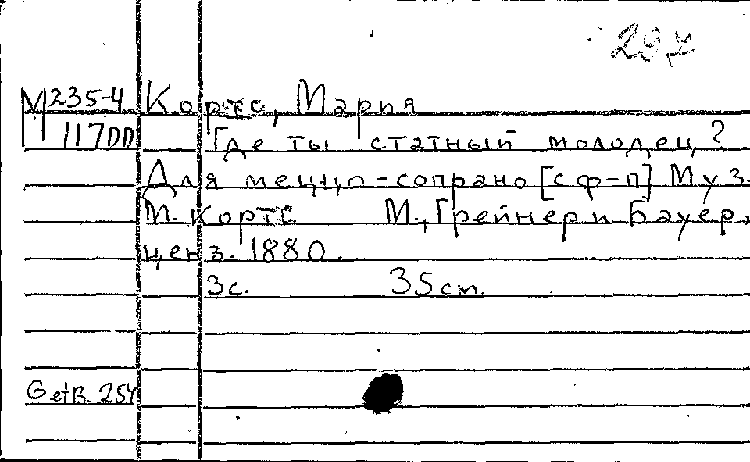 297
М235-4 Кортс, Мария
117DD Где ты статный молодец?
Для меццо-сопрано [с ф-п] Муз.
М. Кортс М., Грейнер и Бауер,
ценз. 1880.
3с. 35cm.
G et B. 254